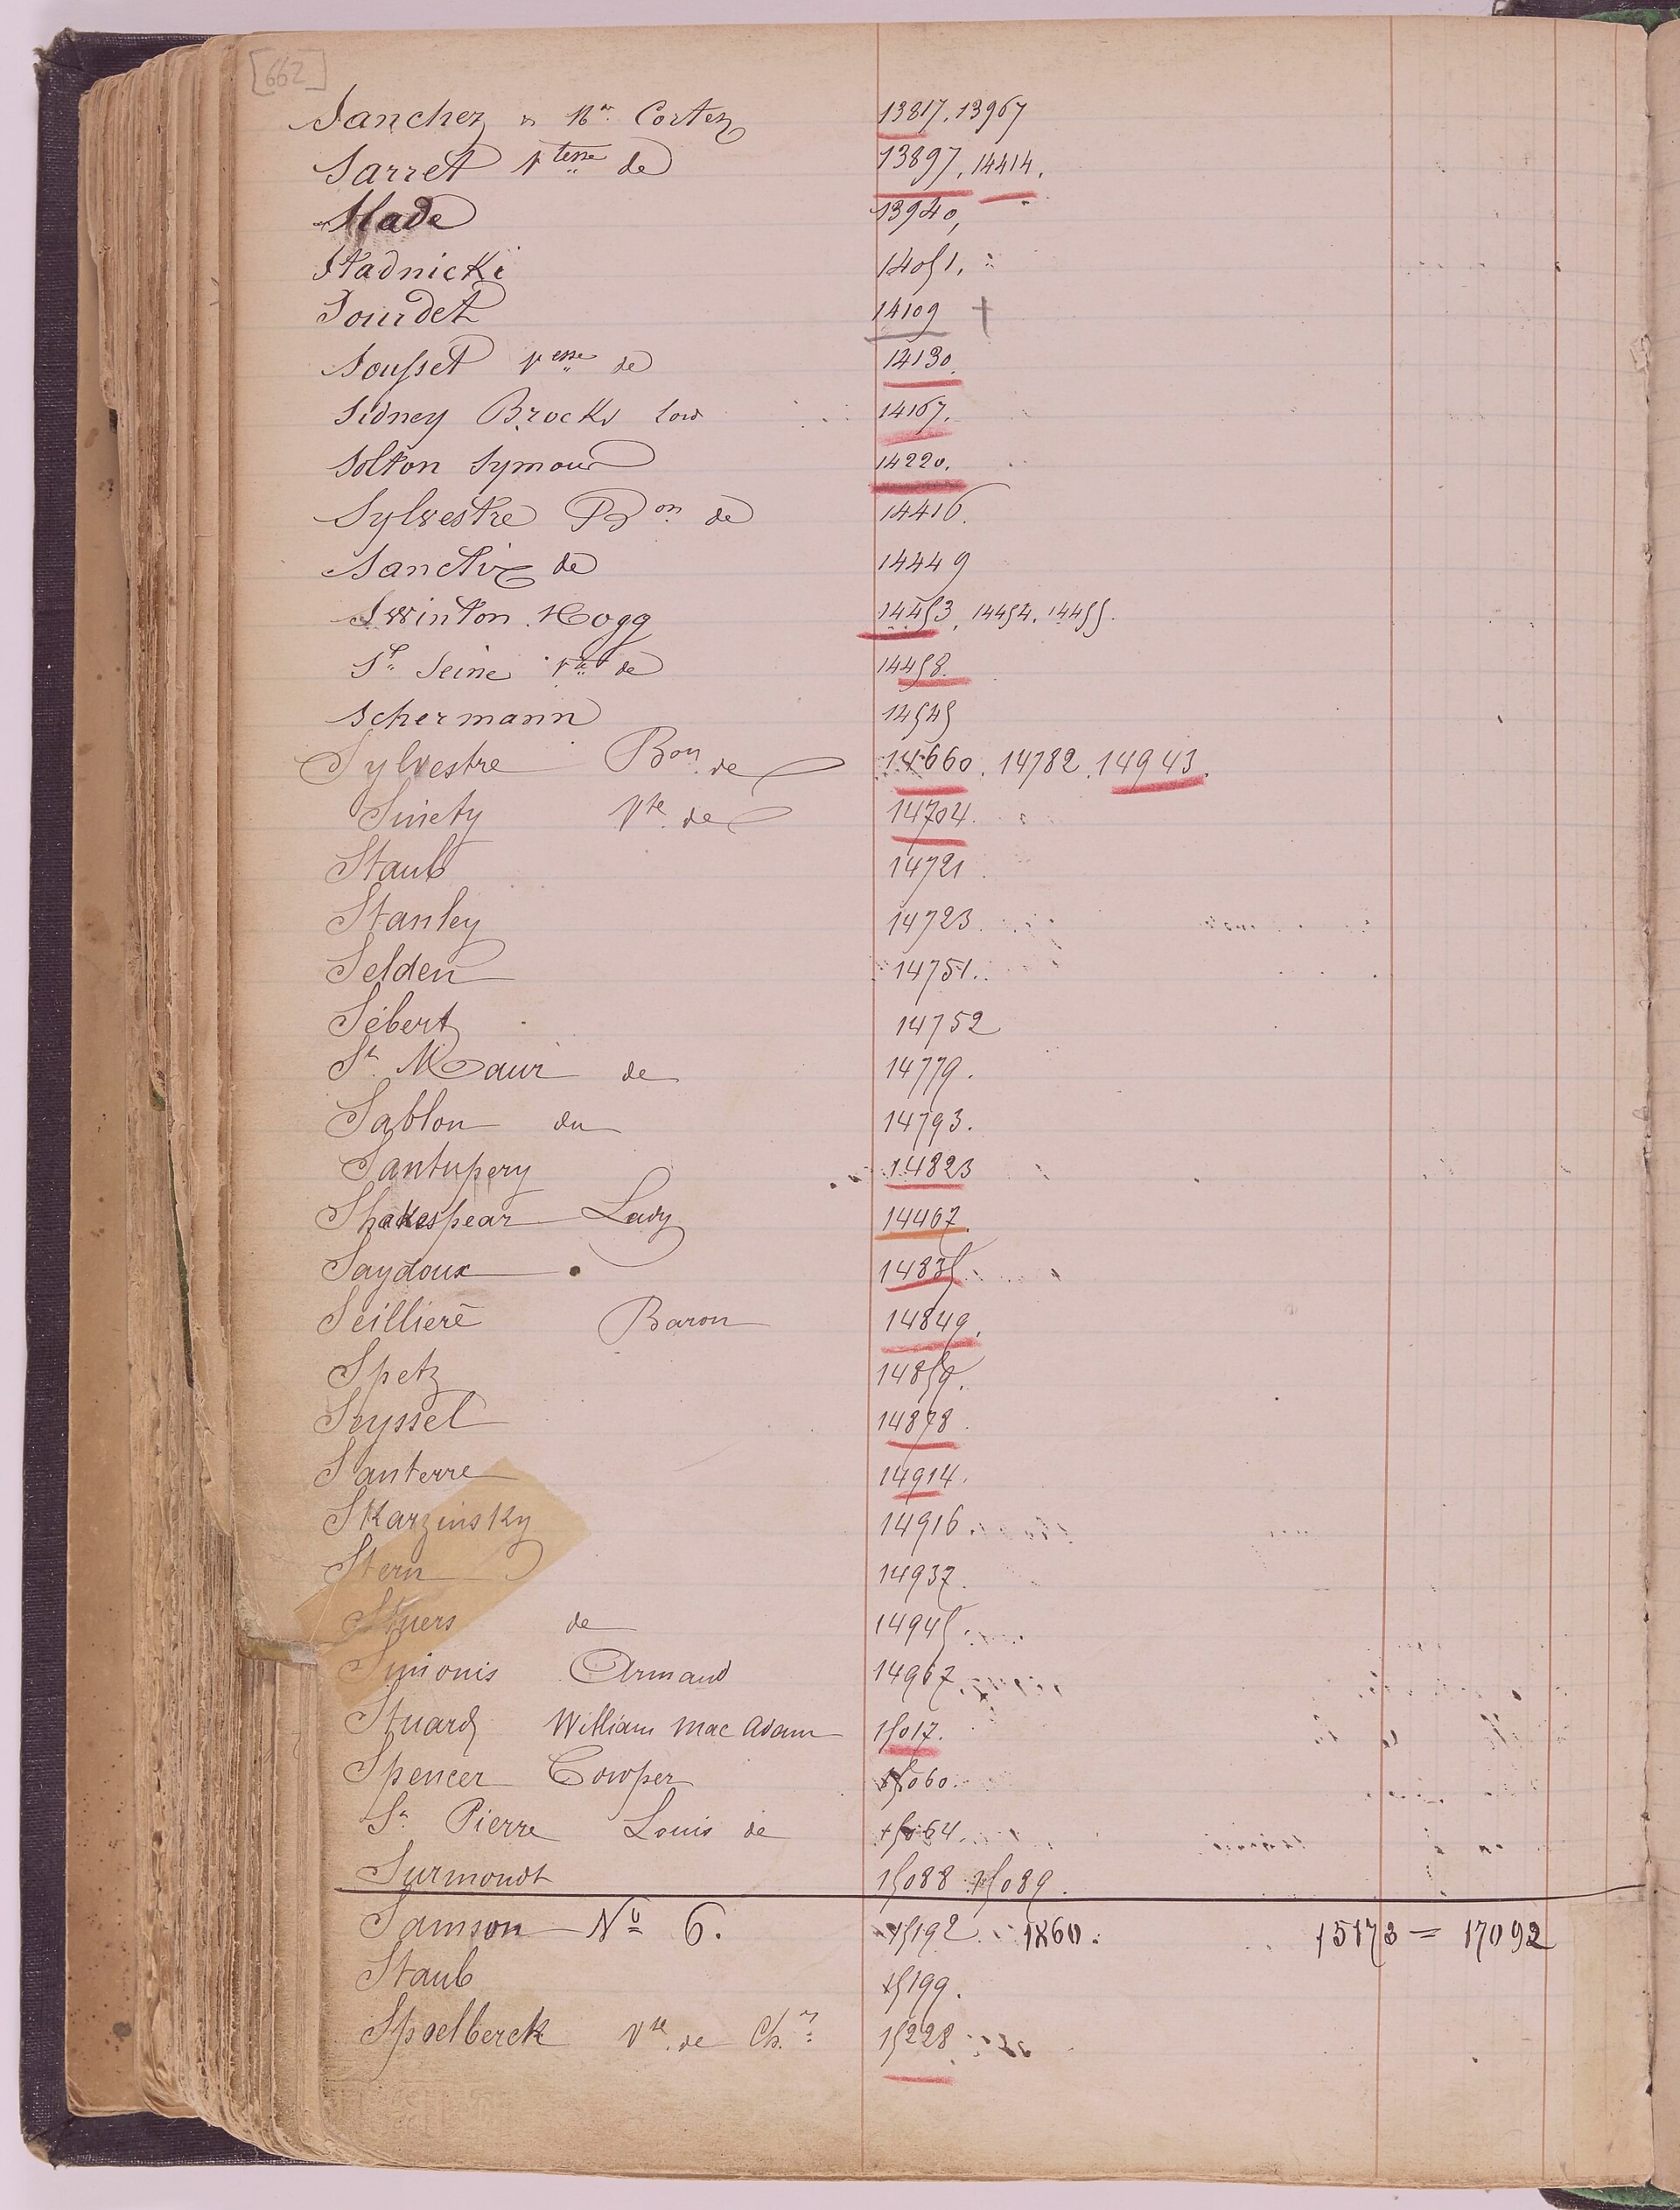 [662]
Sanchez 13817. 13967
Sarret Vtesse de 13897. 14414.
Slade 13940,
Stadnicki 14051.
Sourdet 14109 †
Sousset Vesse de 14130.
Sidney Brocks low 14167.
Solton Symour 14220.
Sylvestre Bon de 14416.
Sanctix de 14449
Swinton Hogg 14453. 14454. 14455.
St Seine Vte de 14458.
Schermann 14545
Sylvestre Bon de 14660. 14782. 14943.
Sinety Vte de 14704.
Staub 14721.
Stanley 14723.
Selden 14751.
Sébert 14752
St Maur de 14779.
Sablon du 14793.
Santupery 14823
Shakespear Lady 14467.
Saydoux 14835
Seilliere Baron 14849.
Spetz 14859.
Seyssel 14878.
Santerre 14914.
Skarzinsky 14916.
Stern 14937.
Stuers de 14945.
Simonis Armand 14967.
Stuard William Mac Adam 15017.
Spencer Cowper 15060.
St Pierre Louis de 15064.
Surmondt 15088 15089.
Samson No 6. 15192. 1860. 15173 = 17092
Staub 15199.
Spoelberck Vte de 15228